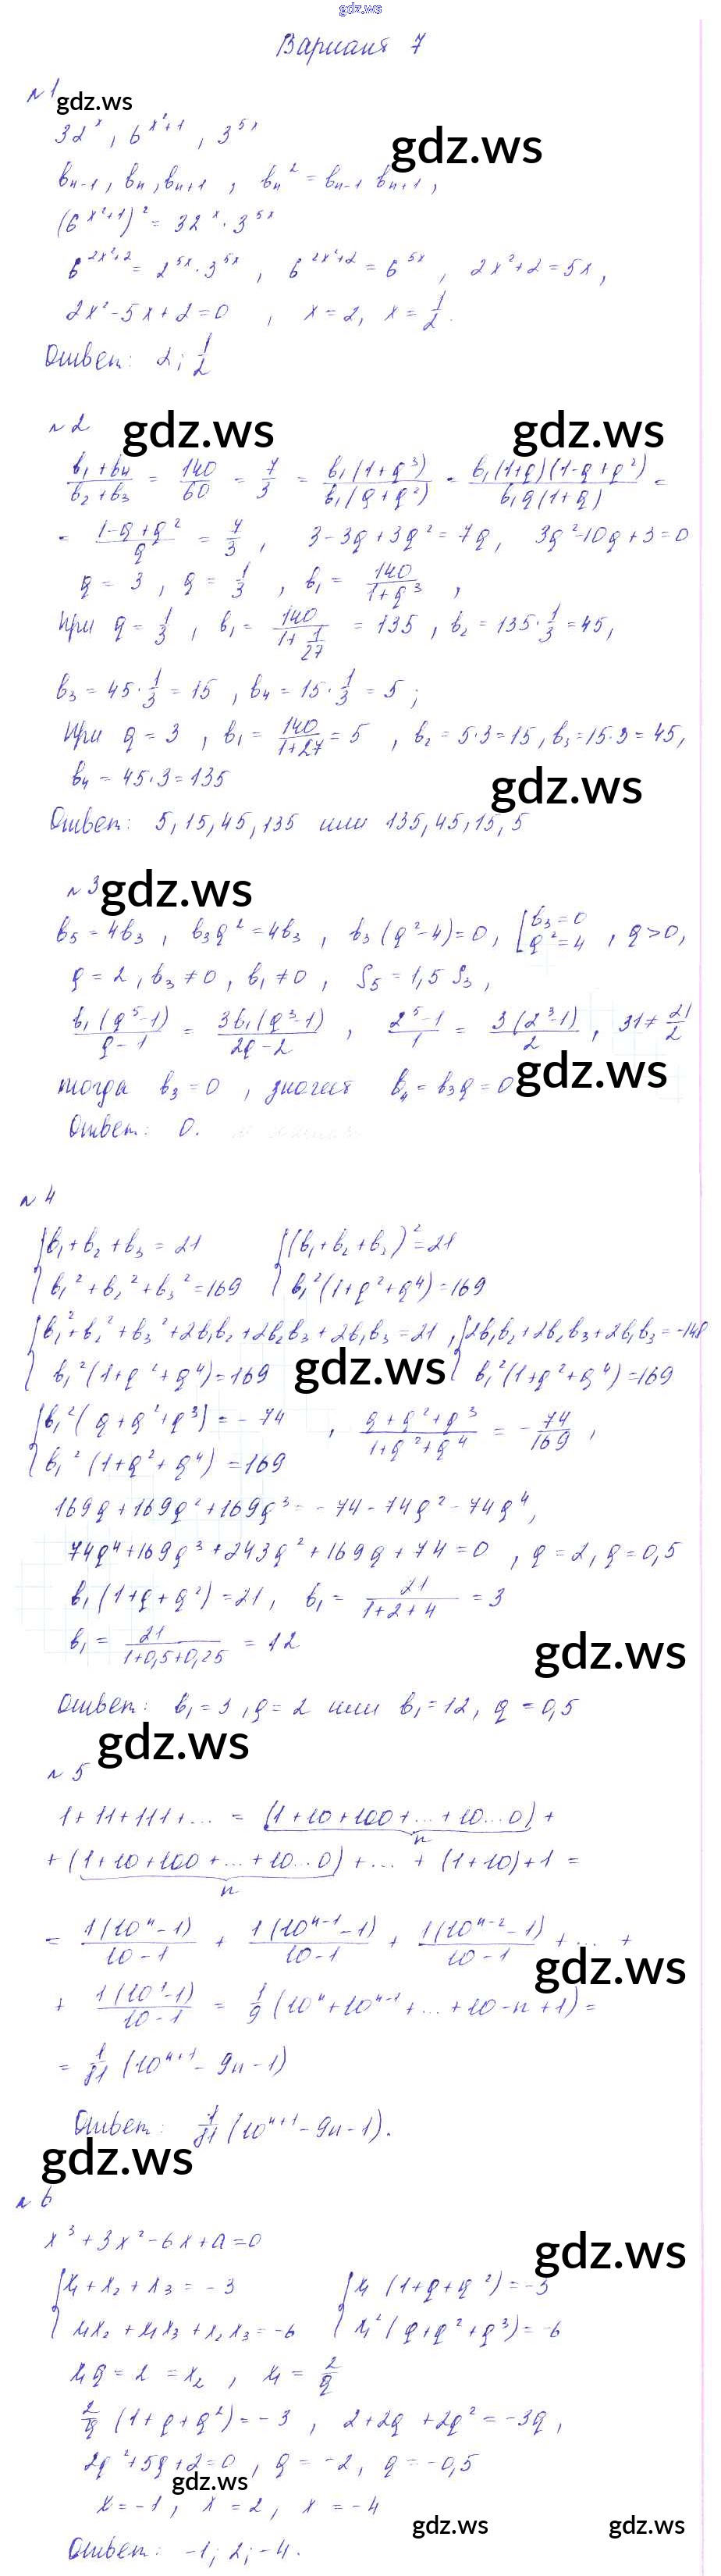 gdz.ws
Вариант 7
№1 gdz.ws
32^x, 6^{x²+1}, 3^{5x} gdz.ws
b_{n-1}, b_n, b_{n+1}, b_n² = b_{n-1} b_{n+1},
(6^{x²+1})² = 32^x · 3^{5x}
6^{2x²+2} = 2^{5x} · 3^{5x}, 6^{2x²+2} = 6^{5x}, 2x²+2=5x,
2x²-5x+2=0, x=2, x=1/2.
Ответ: 2; 1/2
№2 gdz.ws gdz.ws
(b₁+b₄)/(b₂+b₃) = 140/60 = 7/3 = b₁(1+q³)/b₁(q+q²) = b₁(1+q)(1-q+q²)/b₁q(1+q) =
= (1-q+q²)/q = 7/3, 3-3q+3q²=7q, 3q²-10q+3=0
q=3, q=1/3, b₁=140/(1+q³),
При q=1/3, b₁=140/(1+1/27)=135, b₂=135·1/3=45,
b₃=45·1/3=15, b₄=15·1/3=5;
При q=3, b₁=140/(1+27)=5, b₂=5·3=15, b₃=15·3=45,
b₄=45·3=135 gdz.ws
Ответ: 5, 15, 45, 135 или 135, 45, 15, 5
№3 gdz.ws
b₅=4b₃, b₃q²=4b₃, b₃(q²-4)=0, [b₃=0 q²=4, q>0,
q=2, b₃≠0, b₁≠0, S₅=1,5 S₃,
b₁(q⁵-1)/(q-1) = 3b₁(q³-1)/(2q-2), (2⁵-1)/1 = 3(2³-1)/2, 31≠21/2
тогда b₃=0, значит b₄=b₃q=0 gdz.ws
Ответ: 0.
№4
{b₁+b₂+b₃=21 {(b₁+b₂+b₃)²=21
b₁²+b₂²+b₃²=169 b₁²(1+q²+q⁴)=169
{b₁²+b₂²+b₃²+2b₁b₂+2b₂b₃+2b₁b₃=21, {2b₁b₂+2b₂b₃+2b₁b₃=-148
b₁²(1+q²+q⁴)=169 gdz.ws b₁²(1+q²+q⁴)=169
{b₁²(q+q²+q³)=-74, (q+q²+q³)/(1+q²+q⁴) = -74/169,
b₁²(1+q²+q⁴)=169
169q+169q²+169q³=-74-74q²-74q⁴,
74q⁴+169q³+243q²+169q+74=0, q=2, q=0,5
b₁(1+q+q²)=21, b₁=21/(1+2+4)=3
b₁=21/(1+0,5+0,25)=12 gdz.ws
Ответ: b₁=3, q=2 или b₁=12, q=0,5
gdz.ws
№5
1+11+111+... = (1+10+100+...+10...0)+
n
+(1+10+100+...+10...0)+...+(1+10)+1=
n
= 1(10ⁿ-1)/(10-1) + 1(10^{n-1}-1)/(10-1) + 1(10^{n-2}-1)/(10-1) +...+
gdz.ws
+ 1(10¹-1)/(10-1) = 1/9 (10ⁿ+10^{n-1}+...+10-n+1)=
= 1/81 (10^{n+1}-9n-1)
Ответ: 1/81 (10^{n+1}-9n-1).
gdz.ws
№6
x³+3x²-6x+a=0 gdz.ws
{x₁+x₂+x₃=-3 {x₁(1+q+q²)=-3
x₁x₂+x₁x₃+x₂x₃=-6 x₁²(q+q²+q³)=-6
x₁q=2=x₂, x₁=2/q
2/q (1+q+q²)=-3, 2+2q+2q²=-3q,
2q²+5q+2=0, q=-2, q=-0,5
gdz.ws
x=-1, x=2, x=-4
gdz.ws gdz.ws
Ответ: -1; 2; -4.